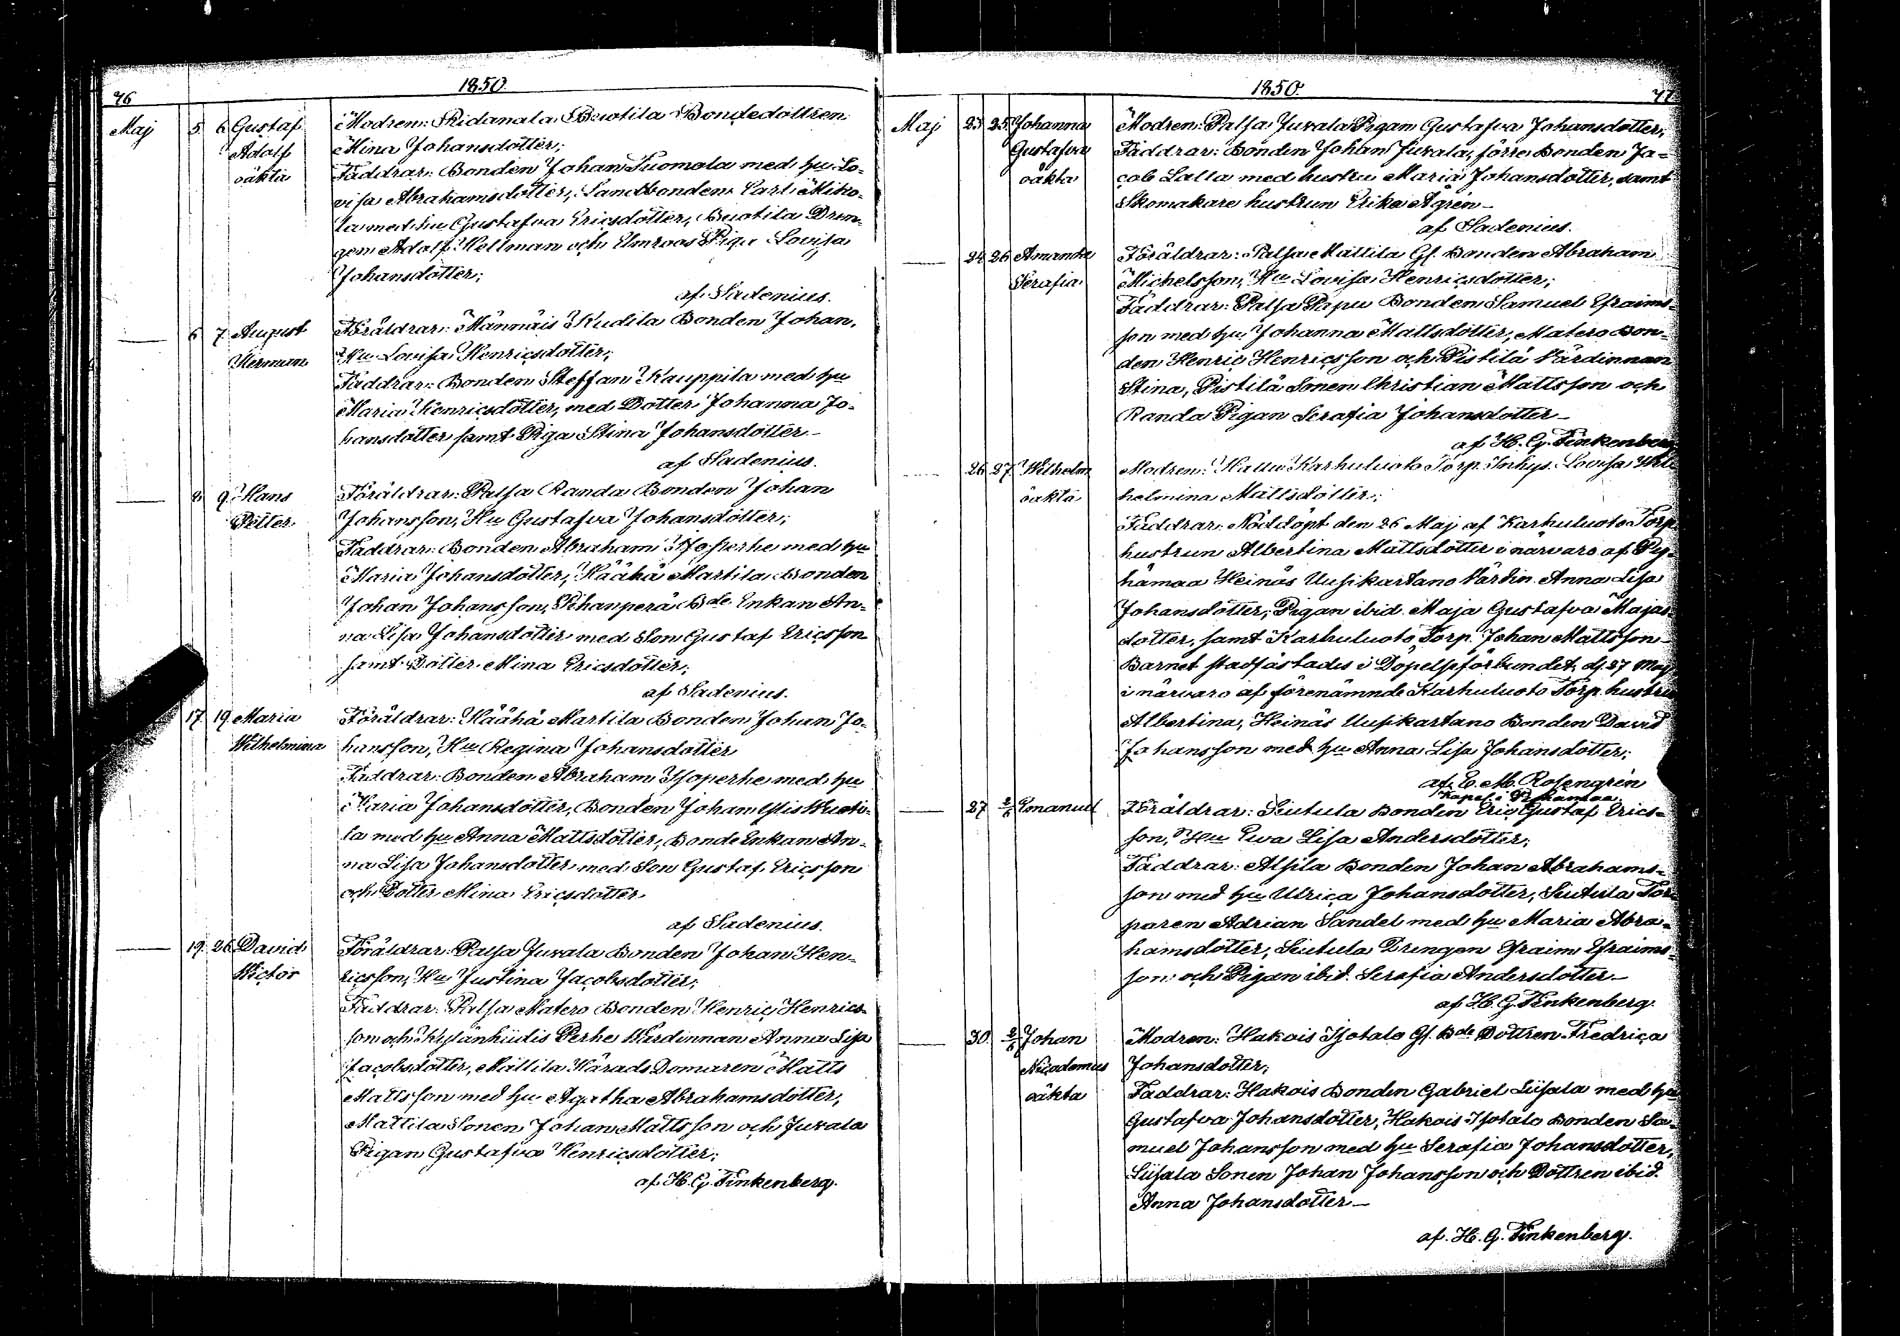 76
1850.
Maj 5. 6. Gustaf Modren: Ridanala Buotila Bondedottren
Adolf Mina Johansdotter;
oäkta Faddrar: Bonden Johan Tuomola med hu Lo-
visa Abrahamsdotter, Landbonden Carl Miko-
la med hu Gustafva Ericsdotter, Buotila Dren-
gen Adolf Hellman och Elmroos Piga Lovisa
Johansdotter;
af Sadenius.
6 7. August Föräldrar: Männäis Kudila Bonden Johan,
Herman Hu Lovisa Henricsdotter;
Faddrar: Bonden Steffan Kauppila med hu
Maria Henricsdotter, med Dotter Johanna Jo-
hansdotter samt Piga Stina Johansdotter
af Sadenius.
8. 9. Hans Föräldrar: Palsa Randa Bonden Johan
Petter Johansson, Hu Gustafva Johansdotter;
Faddrar: Bonden Abraham Isoperhe med hu
Maria Johansdotter, Häähä Martila Bonden
Johan Johansson, Pihanperä Bde Enkan An-
na Lisa Johansdotter med Son Gustaf Ericsson
samt Dotter Mina Ericsdotter;
af Sadenius.
17. 19. Maria Föräldrar: Häähä Martila Bonden Johan Jo-
Wilhelmina hansson, Hu Regina Johansdotter
Faddrar: Bonden Abraham Isoperhe med hu
Maria Johansdotter, Bonden Johan
la med hu Anna Mattsdotter, Bonde Enkan An-
na Lisa Johansdotter med Son Gustaf Ericsson
och Dotter Mina Ericsdotter
af Sadenius.
19. 26. David Föräldrar: Palsa Juvala Bonden Johan Hen-
Victor ricsson, Hu Justina Jacobsdotter;
Faddrar: Palsa Matero Bonden Henric Henrics-
son och Perhe Värdinnan Anna Lisa
Jacobsdotter, Mattila Härads Domaren Matts
Mattsson med hu Agatha Abrahamsdotter,
Mattila Sonen Johan Mattsson och Juvala
Pigan Gustafva Henricsdotter;
af H. G. Finkenberg.
1850.
77
Maj 23. 25. Johanna Modren: Palsa Juvala Pigan Gustafva Johansdotter;
Gustafva Faddrar: Bonden Johan Juvala, förre Bonden Ja-
oäkta cob Lalla med hustru Maria Johansdotter, samt
Skomakare hustrun Erika Ågren
af Sadenius.
24 26 Amanda Föräldrar: Palsa Mattila Gl. Bonden Abraham
Serafia Michelsson, Hu Lovisa Henricsdotter;
Faddrar: Palsa Papu Bonden Samuel Efraims-
son med hu Johanna Mattsdotter, Matero Bon-
den Henric Henricsson och Pistilä Värdinnan
Stina, Pistilä Sonen Christian Mattsson och
Randa Pigan Serafia Johansdotter
af H. G. Finkenberg
26. 27. Wilhelm Modren: Karhuluoto Torp. Inhys. Lovisa Wil-
oäkta helmina Mattsdotter;
Faddrar: Nöddöpt den 26 Maj af Karhuluoto Torp.
hustrun Albertina Mattsdotter i närvaro af Py-
hämaa Heinäs Uusikartano Värdin. Anna Lisa
Johansdotter, Pigan ibid. Maja Gustafva Majas-
dotter, samt Karhuluoto Torp. Johan Mattsson
Barnet stadfästades i Döpelseförbundet, d. 27 Maj
i närvaro af förenämnde Karhuluoto Torp. hustru
Albertina, Heinäs Uusikartano Bonden David
Johansson med hu Anna Lisa Johansdotter;
af E. M. Rosengrén
Kapel. i Pyhämaa.
27 2/6 Emanuel Föräldrar: Siutula Bonden Eric Gustaf Erics-
son, Hu Eva Lisa Andersdotter;
Faddrar: Alsila Bonden Johan Abrahams-
son med hu Ulrica Johansdotter, Siutula Tor-
paren Adrian Sandel med hu Maria Abra-
hamsdotter, Siutula Drengen Efraim Efraims-
son och Pigan ibid. Serafia Andersdotter
af H. G. Finkenberg
30. 2/6 Johan Modren: Hakois Isotalo Gl. Bde Dottren Fredrica
Nicodemus Johansdotter;
oäkta Faddrar: Hakois Bonden Gabriel Liisala med hu
Gustafva Johansdotter, Hakois Isotalo Bonden Sa-
muel Johansson med hu Serafia Johansdotter,
Liisala Sonen Johan Johansson och Dottren ibid.
Anna Johansdotter
af. H. G. Finkenberg.